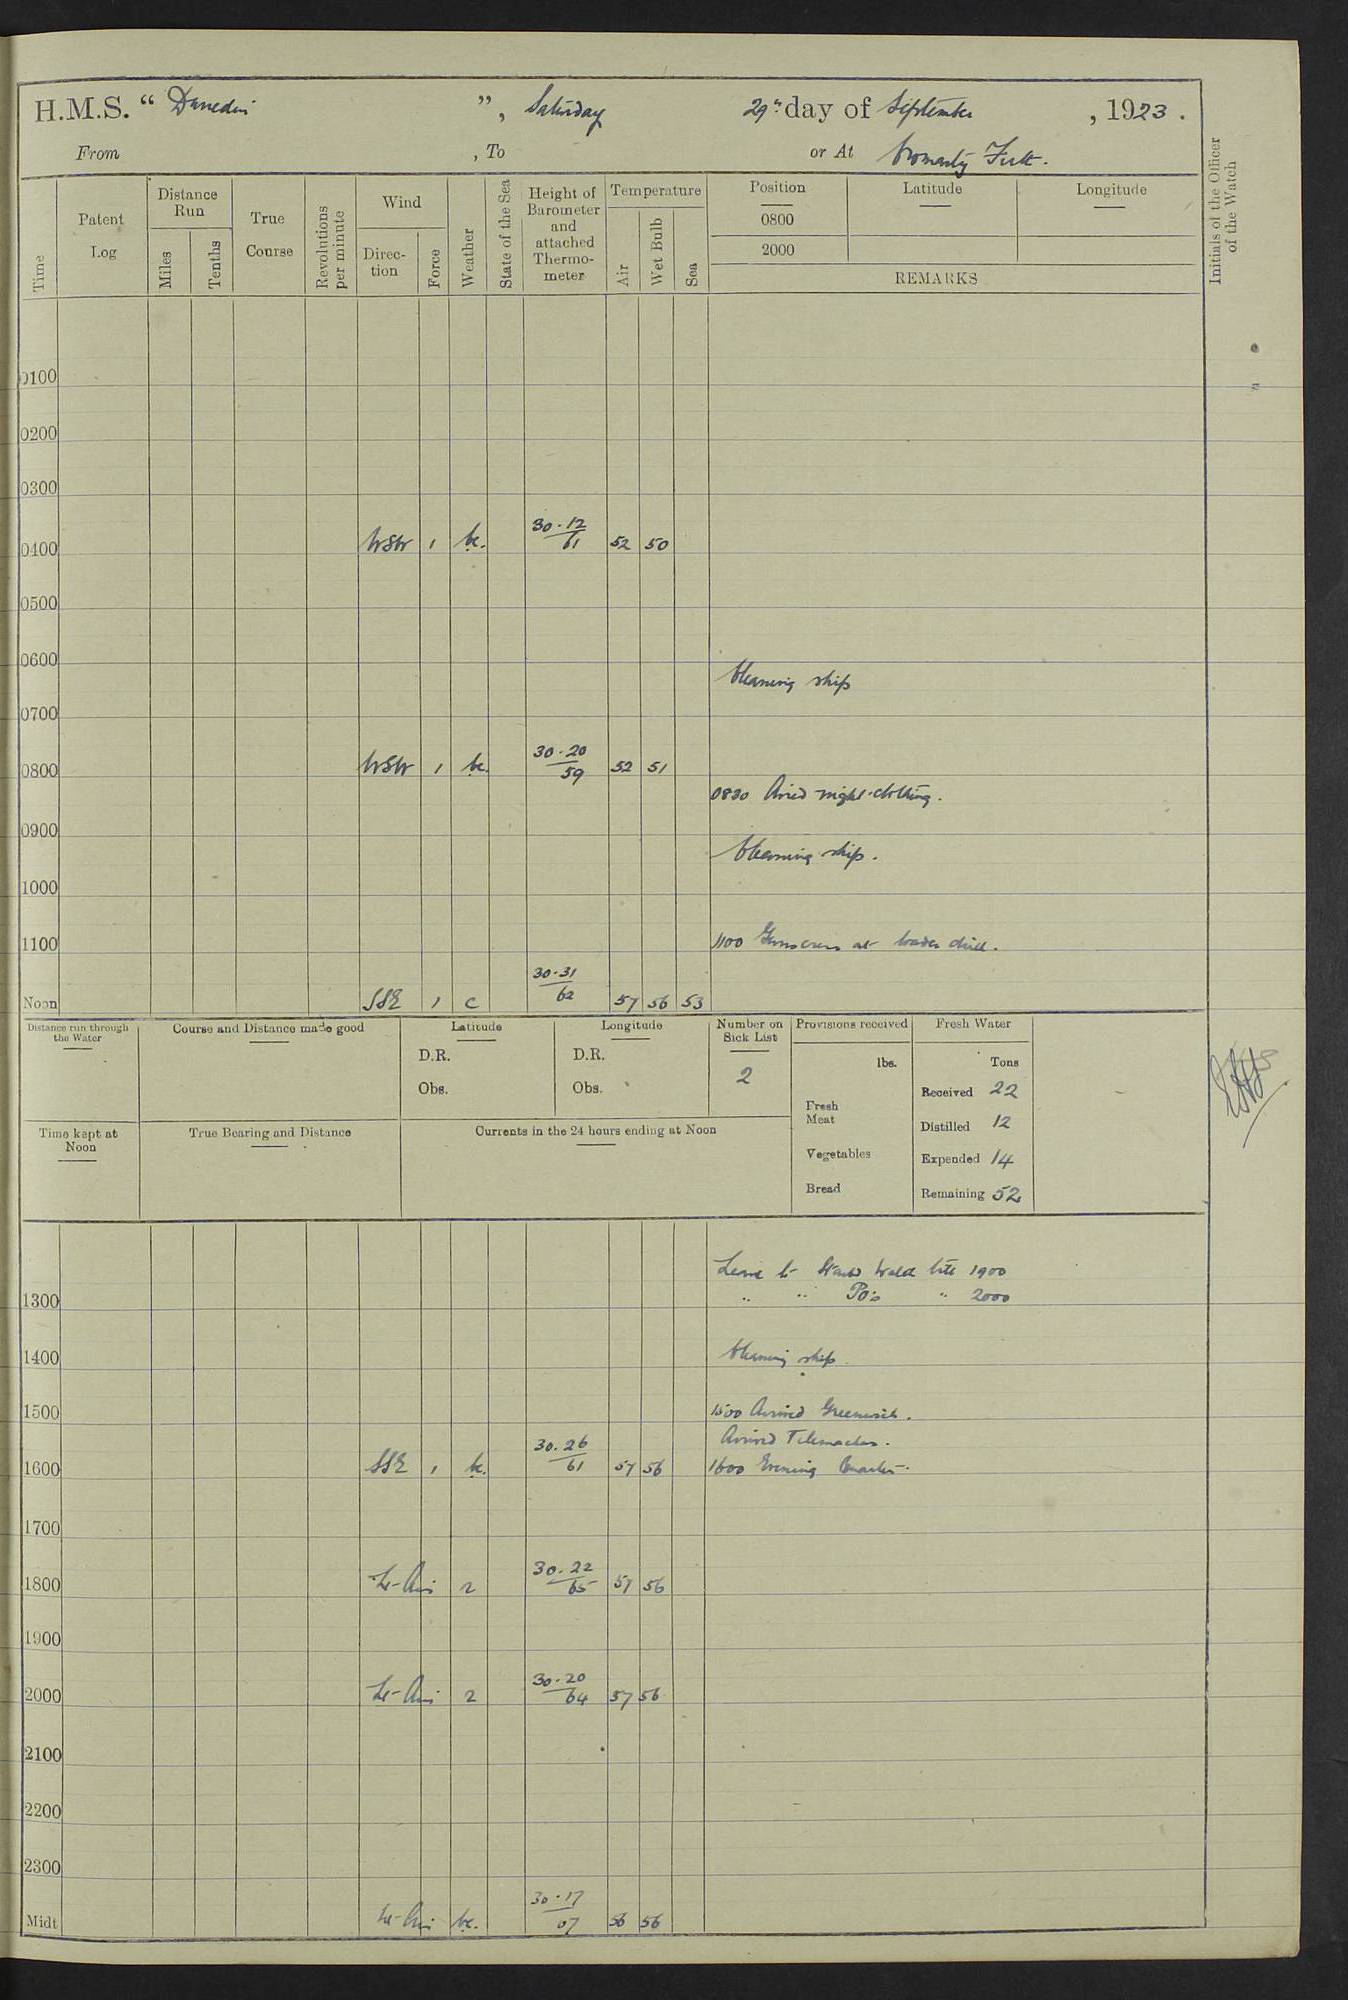 H.M.S. " Dunedin ", Saturday 29th day of September, 1923.
From , To or At Cromarty Firth.
Time
Patent Log
Distance Run
Miles
Tenths
True Course
Revolutions per minute
Wind
Direction
Force
Weather
State of the Sea
Height of Barometer and attached Thermometer
Temperature
Air
Wet Bulb
Sea
Position Latitude Longitude
0800
2000
REMARKS
Initials of the Officer of the Watch
0100
0200
0300
0400 WSW 1 bc. 30.12 61 52 50
0500
0600
Cleaning ship
0700
0800 WSW 1 bc. 30.20 59 52 51
0830 Aired night clothing.
0900
Cleaning ship.
1000
1100 1100 Guns crews at loader drill.
Noon SSE 1 c 30.31 62 57 56 53
Distance run through the Water
Course and Distance made good
Latitude
D.R.
Obs.
Longitude
D.R.
Obs.
Number on Sick List
2
Provisions received
lbs.
Fresh Meat
Vegetables
Bread
Fresh Water
Tons
Received 22
Distilled 12
Expended 14
Remaining 52
Time kept at Noon
True Bearing and Distance
Currents in the 24 hours ending at Noon
Leave to Starbd Watch till 1900
1300 " " POs " 2000
1400 Cleaning ship.
1500 1500 Arrived Greenwich.
Arrived Telemachus.
1600 SSE 1 bc. 30.26 61 57 56 1600 Evening Quarters.
1700
1800 Lt-Airs 2 30.22 65 57 56
1900
2000 Lt-Airs 2 30.20 64 57 56
2100
2200
2300
Midt Lt-Airs bc. 30.17 67 56 56